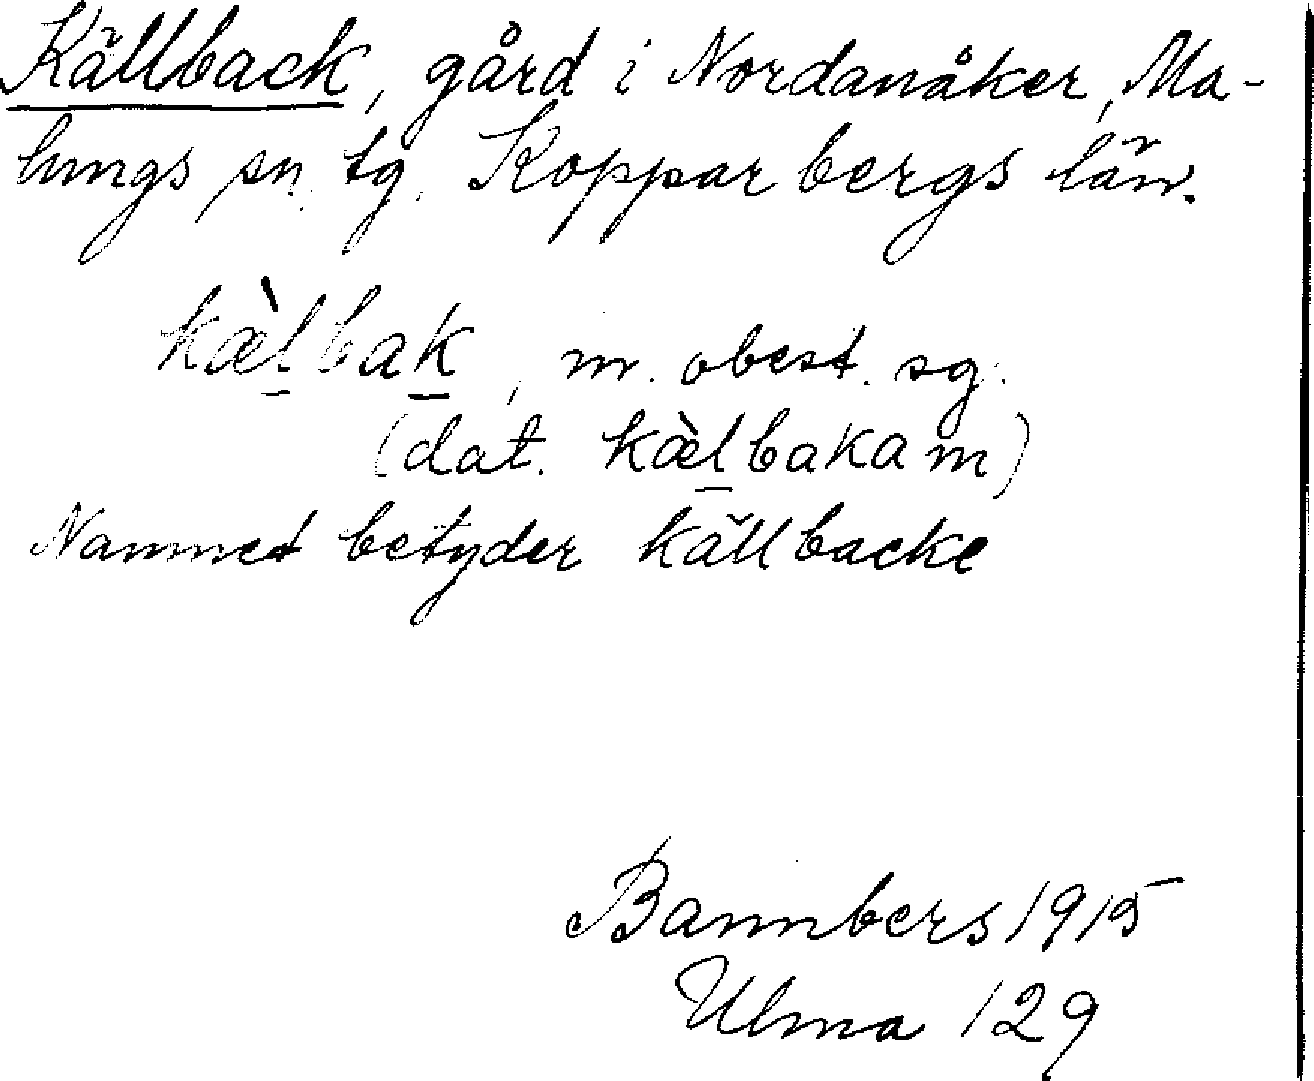 Källback, gård i Nordanåker, Ma-
lungs sn. tg. Kopparbergs län.
kæ̀l̠bak̠, m. obest. sg.
(dat. kæ̀l̠bakam)
Namnet betyder källbacke
Bannbers 1915
Ulma 129